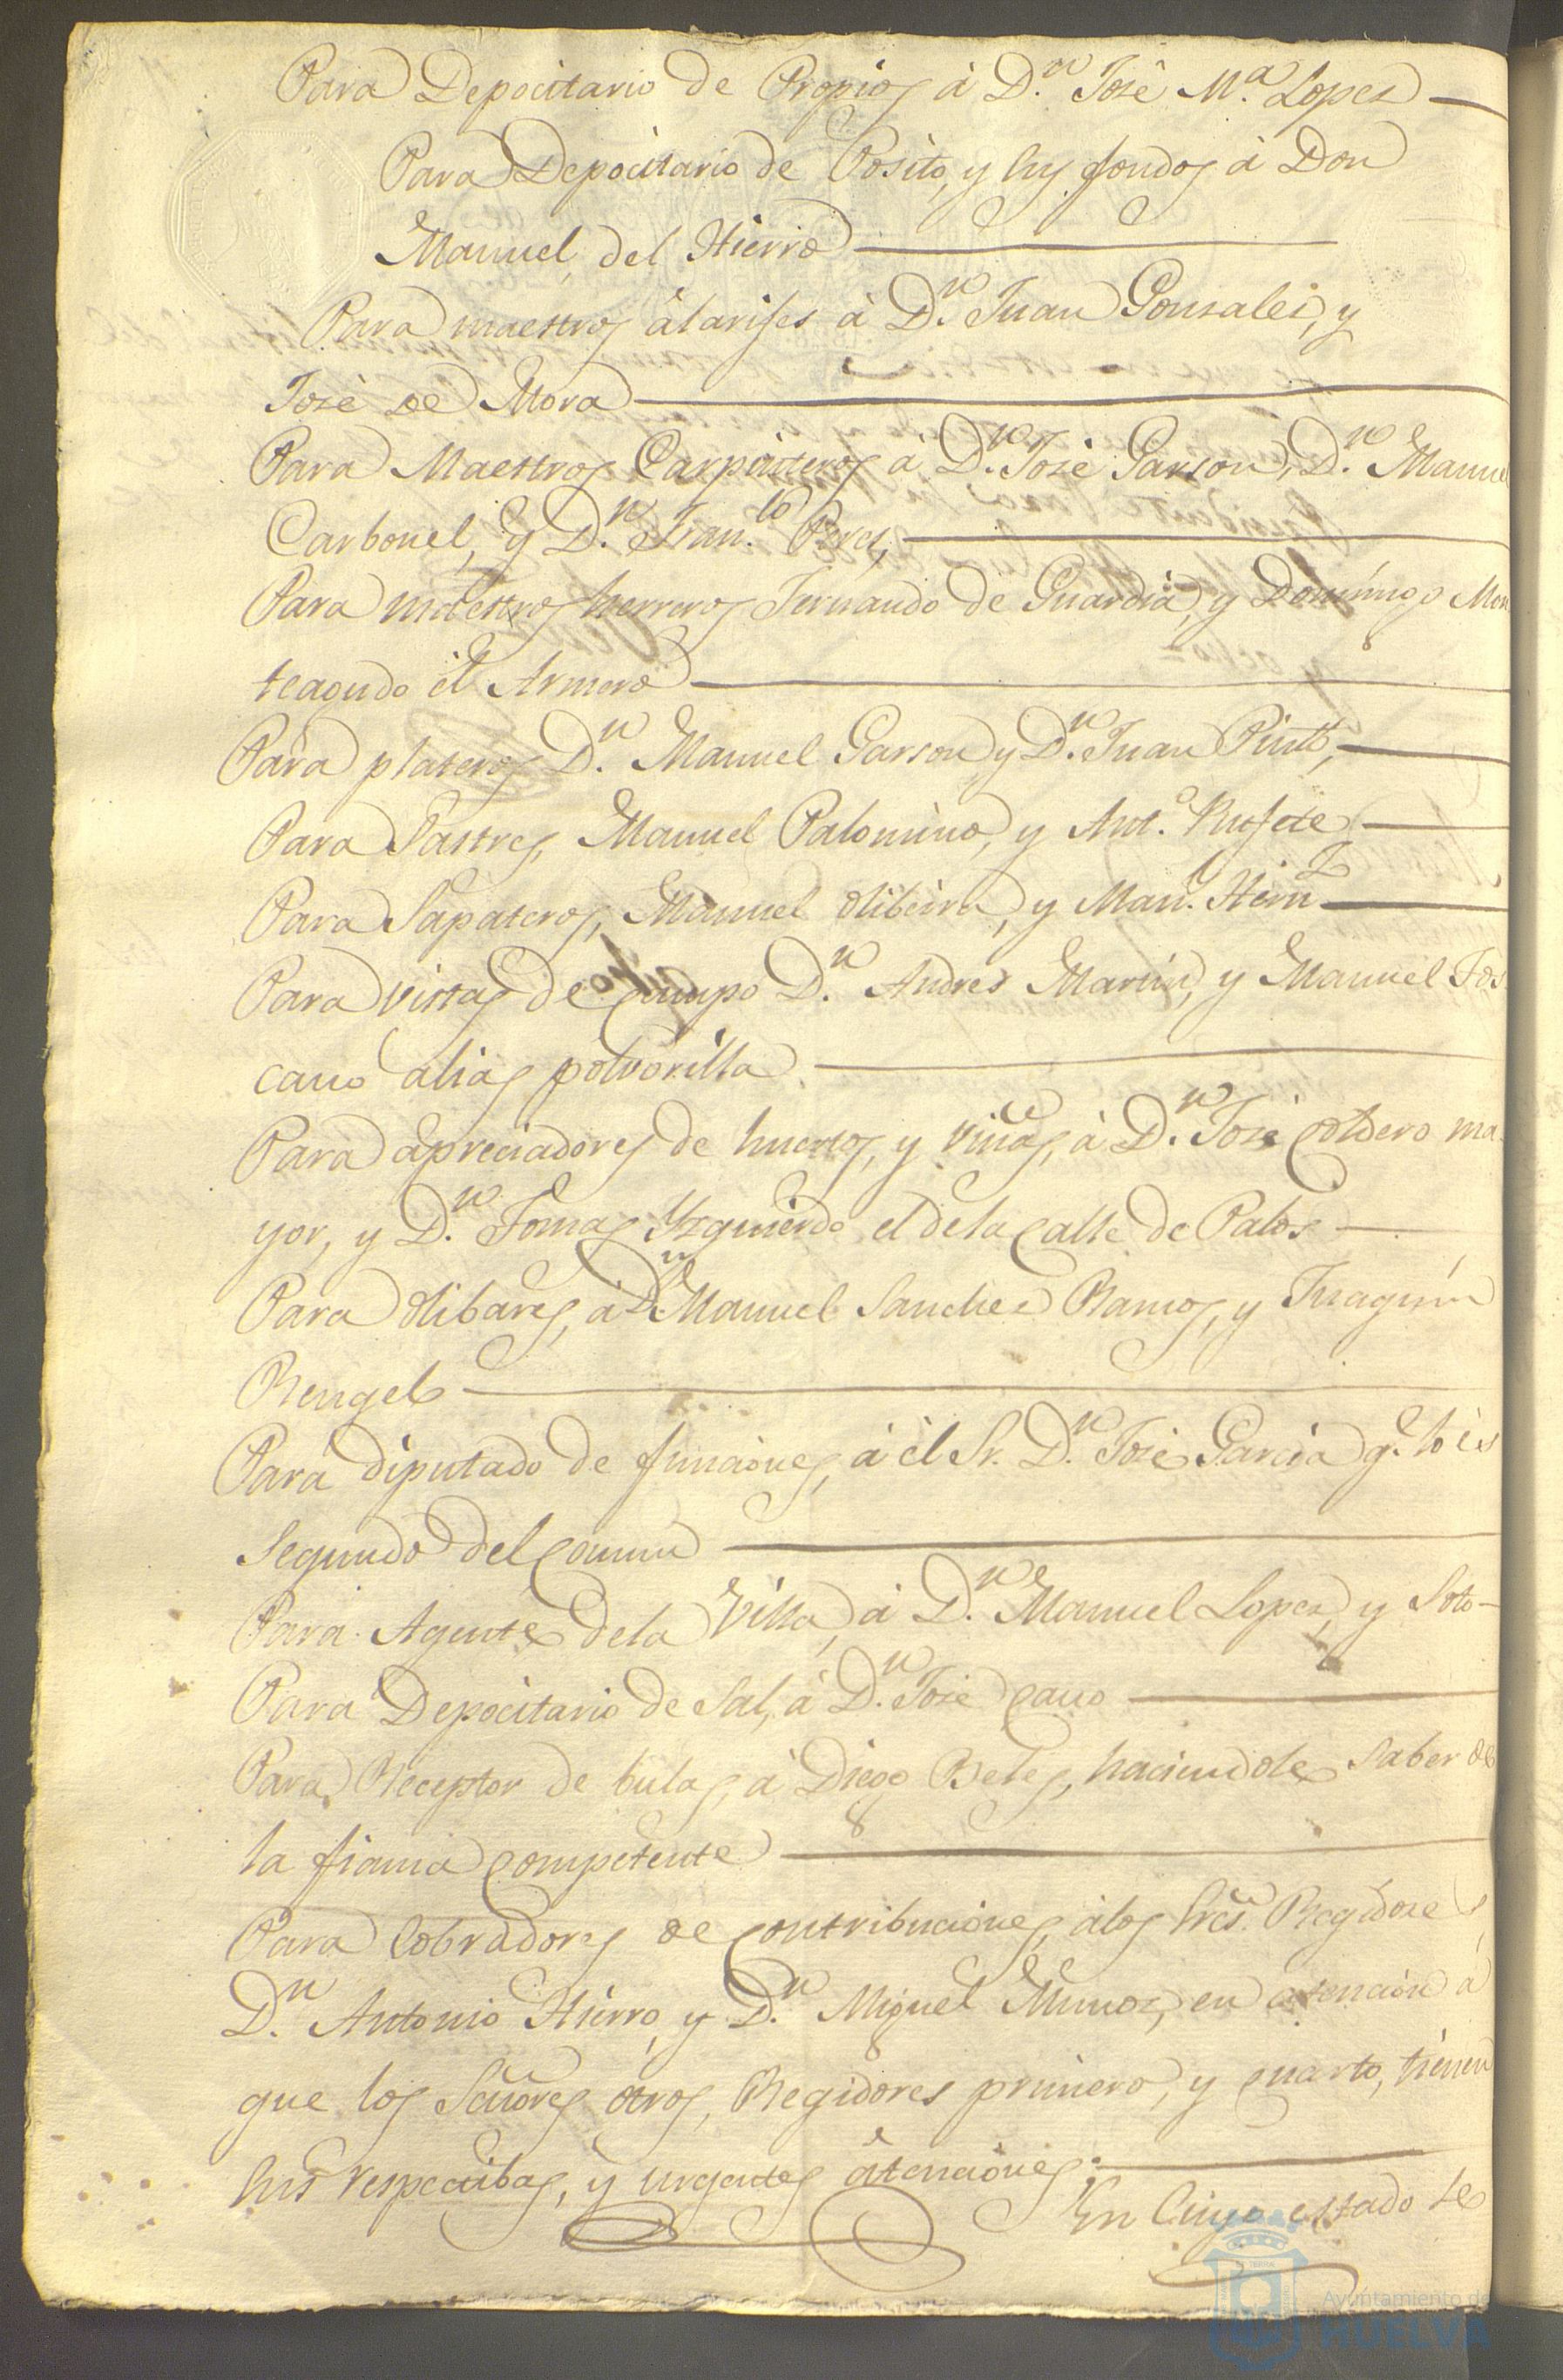 Para Depocitario de Propios à D.n José M.a Lopez
Para Depocitario de Posito, y sus fondos à Don
Manuel del Hierro
Para maestros álarifes à D.n Juan Gonsales, y
José de Mora
Para Maestros Carpinteros à D.n José Garson, D.n Manuel
Carbonel, y D.n Fran.co Peres,
Para maestros herreros Fernando de Guardia, y Domingo Mon
teagudo él Armero
Para plateros D.n Manuel Garson y D.n Juan Pinto,
Para Sastres, Manuel Palomino, y Ant.o Rufete
Para Sapateros, Manuel Olibeira, y Man.l Hern.z
Para vistas de campo D.n Andres Martin, y Manuel Tos
cano alias polvorilla
Para apreciadores de huertos, y viñas, à D.n José Coldero ma
yor, y D.n Tomas Yzquierdo el dela calle de Palos
Para Olibares, à D.n Manuel Sanchez Ramos, y Juaquin
Rengel
Para diputado de funciónes, à él Sr. D.n José Garcia q.e lo és
Segundo del comun
Para Agente dela Villa, à D.n Manuel Lopez, y Soto
Para Depocitario de Sal, à D.n José Cano
Para Receptor de bulas, à Diego Beles, haciendole saber dé
la fianza competente
Para Cobradores de contribuciónes, álos Sres. Regidores
D.n Antonio Hierro, y D.n Miguel Muños, en atención à
que los Señores ótros, Regidores primero, y cuarto, tienen
sus respectibas, y urgentes átenciónes.
En Cuyo estado se
Ayuntamiento de
HUELVA